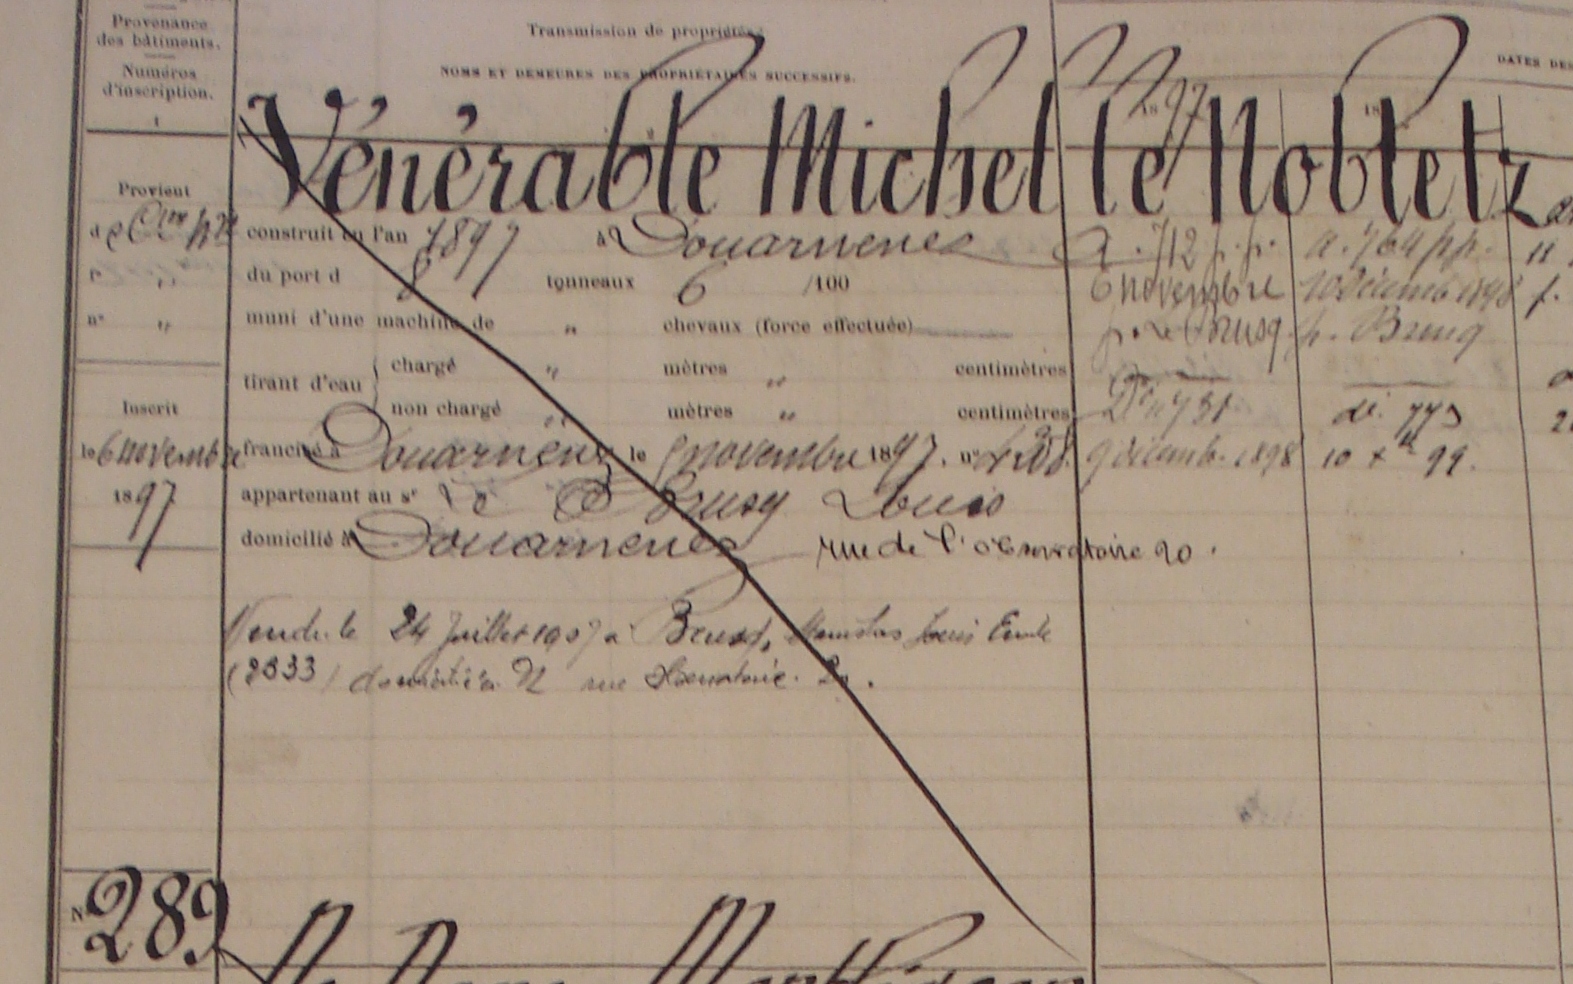 Provenance
des bâtiments.
Numéros
d'inscription.
1
Transmission de propriétés
NOMS ET DEMEURES DES PROPRIÉTAIRES SUCCESSIFS.
2
DATES DES
1897
18
Vénérable Michel le Nobletz
Provient
d
construit en l'an 1897 à Douarnenez
r° "
du port d 8 tonneaux 6 /100
n° "
muni d'une machine de " chevaux (force effectuée)
tirant d'eau
chargé " mètres " centimètres
non chargé " mètres " centimètres
Inscrit
le 6 novembre
1897
francisé à Douarnenez le novembre 1897. n°
appartenant au sr Le Brusq Louis
domicilié à Douarnenez rue de l'observatoire 20.
Vendu le 24 Juillet 1907 à Brusq, Louis Emile
(2333) domicilié à Dz rue Observatoire. 20.
a. 712 p.p.
6 novembre
p. Le Brusq
D. n° 731
9 décemb. 1898
a. 764 p.p.
10 décemb 1898
p. Brusq
di. 773
10 x 99.
N° 289